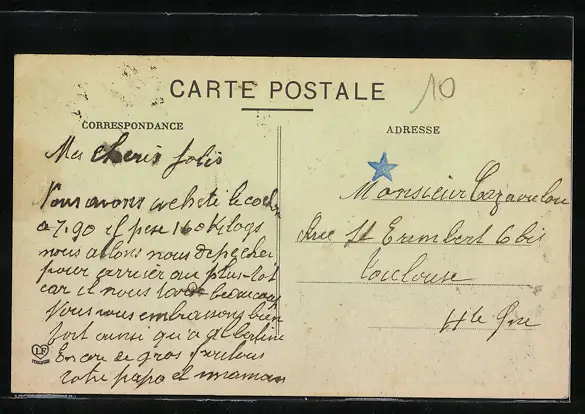 CARTE POSTALE
10
CORRESPONDANCE
ADRESSE
Mes cheris Jolis
Nous avons acheté le cochon
a 7.90 il pese 160 Kilogs
nous allons nous depecher
pour arriver au plus-tot
car il nous tarde beaucoup
Nous vous embrassons bien
fort ainsi qu'a Albertine
Encore de gros
votre papa et maman
Monsieur
Rue St Erembert 6 bis
Toulouse
Hte Gne
LF